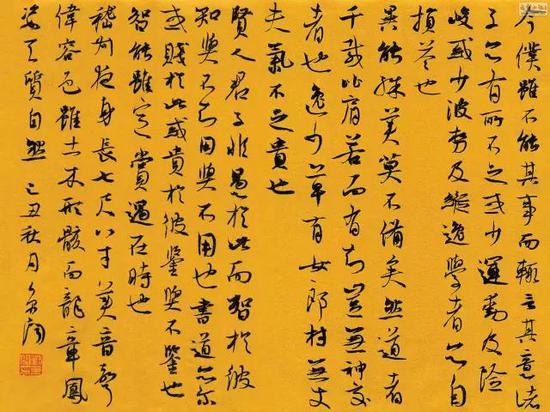 今僕雖不能其事而輒言其意諸
子亦有所不足或少運動及險
峻或少波勢及縱逸學者亦自
損益也
異能殊美莫不備矣然道者
千載比肩若而有知豈無神交
者也逸少草有女郎材無丈
夫氣不足貴也
賢人君子非愚於此而智於彼
知與不知用與不用也書道亦爾
或賤於此或貴於彼鑒與不鑒也
智能雖定賞遇在時也
嵇叔夜身長七尺八寸美音聲
偉容色雖土木形骸而龍章鳳
姿天質自然 己丑秋月